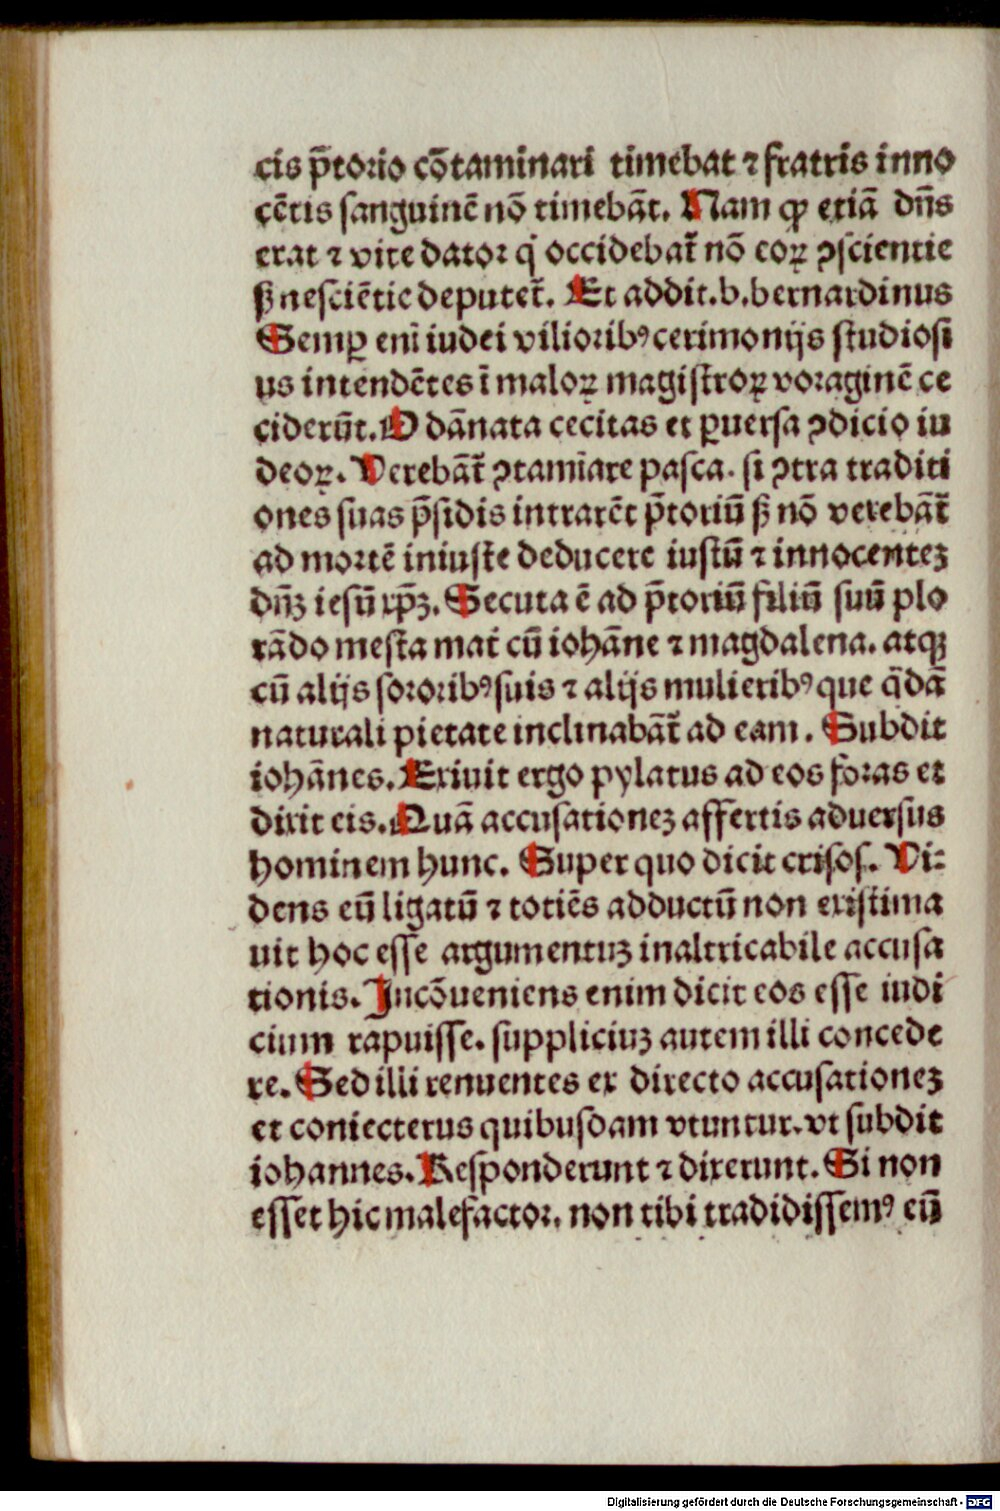 cis p̄torio cōtaminari timebat ⁊ fratris inno
cētis sanguinē nō timebāt. Nam ꝙ etiā dn̄s
erat ⁊ vite dator q̇ occidebat̄ nō eoꝝ ꝯscientie
ſꝫ nesciētie deputet̄. Et addit.b.bernardinus
Semꝑ eni̅ iudei vilioribꝰ cerimonijs studiosi
us intendētes ī maloꝝ magistroꝝ voraginē ce
ciderūt. O dānata cecitas et ꝑuersa ꝯdicio iu
deoꝝ. Verebāt̄ ꝯtami̅are pasca. si ꝯtra traditi
ones suas p̄sidis intrarēt p̄toriū ſꝫ nō verebāt̄
ad mortē iniuste deducere iustū ⁊ innocenteꝫ
dn̄ꝫ iesū xp̄ꝫ. Secuta ē ad p̄toriū filiū suū plo
rādo mesta mat̄ cū iohāne ⁊ magdalena. atqꝫ
cū alijs sororibꝰ suis ⁊ alijs mulieribꝰ que q̄dā
naturali pietate inclinabāt̄ ad eam. Subdit
iohānes. Exiuit ergo pylatus ad eos foras et
dixit eis. Quā accusationeꝫ affertis aduersus
hominem hunc. Super quo dicit crisos. Vi⸗
dens eū ligatū ⁊ totiēs adductū non existima
uit hoc esse argumentuꝫ inaltricabile accusa
tionis. Incōueniens enim dicit eos esse iudi
cium rapuisse. suppliciuꝫ autem illi concede
re. Sed illi renuentes ex directo accusationeꝫ
et coniecterus quibusdam vtuntur. vt subdit
iohannes. Responderunt ⁊ dixerunt. Si non
esset hic malefactor. non tibi tradidissemꝰ eū
Digitalisierung gefördert durch die Deutsche Forschungsgemeinschaft - DFG